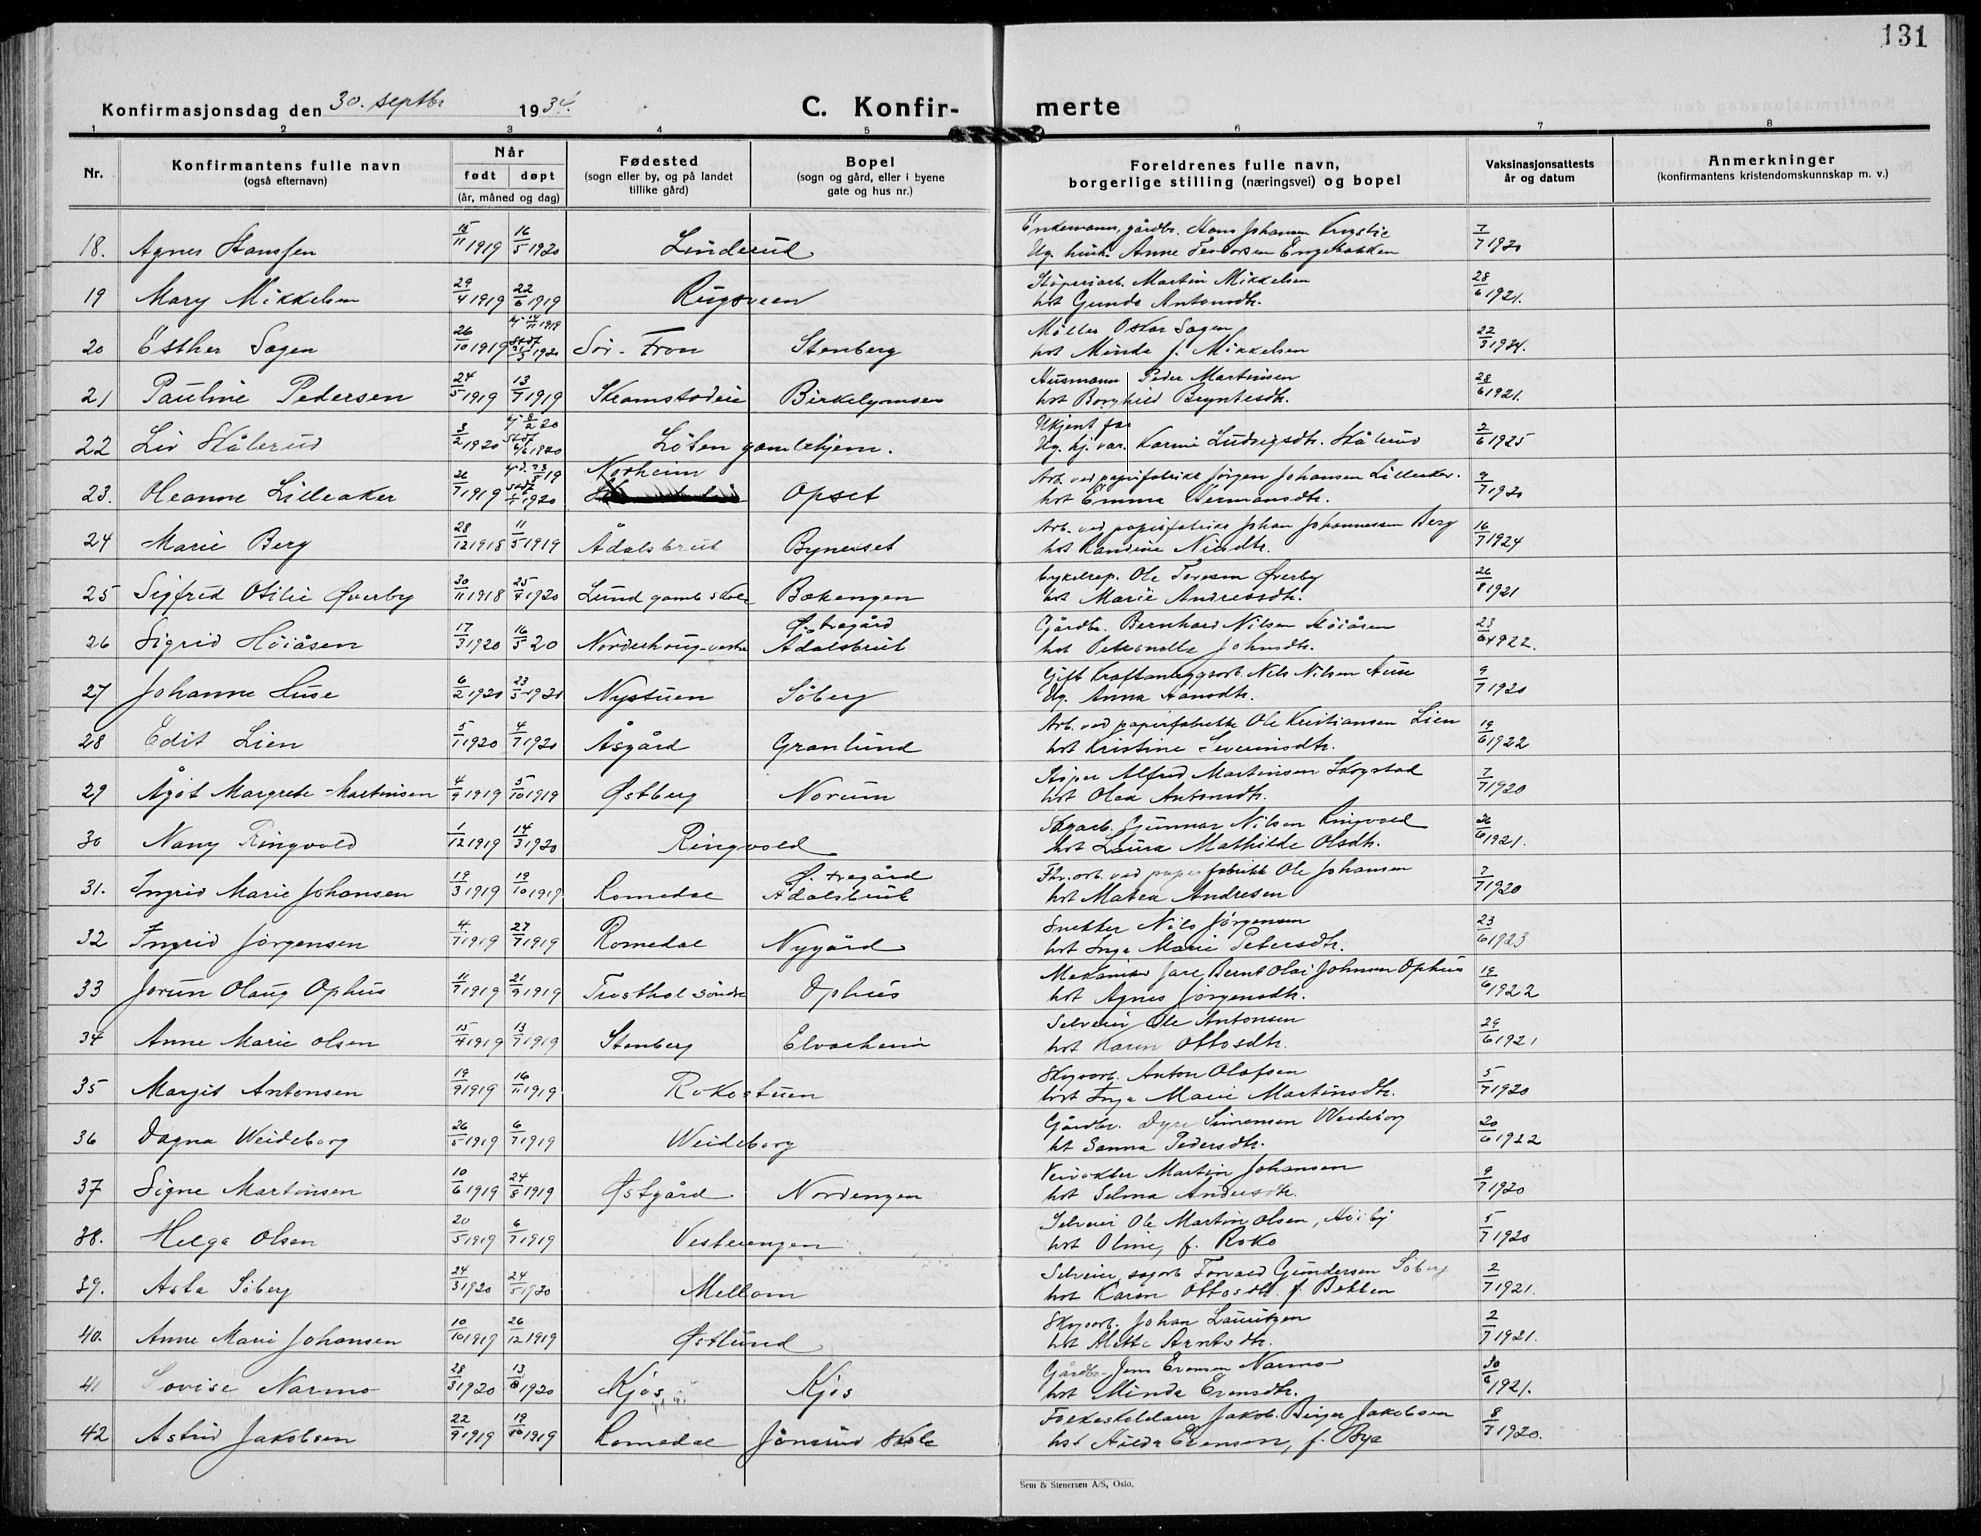 131
Konfirmasjonsdag den 30. septbr 1934.
C. Konfir- merte
1 2 3 4 5 6 7 8
Nr.
Konfirmantens fulle navn
(også efternavn)
Når
født døpt
(år, måned og dag)
Fødested
(sogn eller by, og på landet
tillike gård)
Bopel
(sogn og gård, eller i byene
gate og hus nr.)
Foreldrenes fulle navn,
borgerlige stilling (næringsvei) og bopel
Vaksinasjonsattests
år og datum
Anmerkninger
(konfirmantens kristendomskunnskap m. v.)
18. Agnes Hanssen 15/11 1919 16/5 1920 Linderud Enkemann, gårdbr. Hans Johansen 7/7 1920
Ug. Anne
19 Mary Mikkelsen 29/4 1919 22/6 1919 Rugsveen Støperiarb. Martin Mikkelsen 28/6 1921.
hst Gunda Antonsdtr.
20 Esther Sagen 26/10 1919 Sør-Fron Stenberg Møller Oskar Sagen
hst Minda f. Mikkelsen
21 Pauline Pedersen 24/5 1919 13/7 1919 Birkelymoen Husmann Peder Martinsen 28/6 1921.
hst Borghild Bryntesdtr.
22 Liv Skålerud 3/2 1920 Løten gamlehjem. Ukjent far 2/6 1925
Ug. Karine Ludvigsdtr. Skålerud
23. Oleanne Lilleaker 26/7 1919 Norheim Opset Arb. ved papirfabrikk Jørgen Johansen Lilleaker. 9/7 1920
hst Emma Hermansdtr.
24 Marie Berg 28/12 1918 11/5 1919 Ådalsbruk Bynerset Arb. ved papirfabrikk Johan Johannessen Berg 16/7 1924
hst Randine
25 Sigfred Otilie Øverby 30/11 1918 25/4 1920 Lund gamle skole Bakengen Cykelrep. Ole Toresen Øverby 26/8 1921
hst Marie Andreasdtr.
26 Sigrid Høiåsen 17/3 1920 16/5 20 Norderhoug-vestre Ø. tregård Ådalsbruk Gårdbr. Bernhard Nilsen Høiåsen 23/6 1922.
hst Petronelle Johnsdtr.
27 Johanne Huse 6/2 1920 23/5 1920 Nystuen Søberg Gift kraftanleggsarb. Nils Nilsen Huse 9/7 1920
Ug. Anna Hansdtr.
28 Edit Lien 5/1 1920 4/7 1920 Åsgård Granlund Arb. ved papirfabrikk Ole Kristiansen Lien 19/6 1922
hst Kristine Severinsdtr.
29 Ågot Margrete Martinsen 4/9 1919 5/10 1919 Østberg Norum Støper Alfred Martinsen Skogstad 7/7 1920
hst Olea Antonsdtr.
30 Nany Ringvold 1/12 1919 14/3 1920 Ringvold Skogarb. Gunnar Nilsen Ringvold 26/6 1921.
hst Laura Mathilde Olsdtr.
31. Ingrid Marie Johansen 19/3 1919 19/10 1919 Romedal Ø. tregård Ådalsbruk Fhv. arb. ved papirfabrikk Ole Johansen 7/7 1920
hst Matea Andresen
32 Ingrid Jørgensen 4/7 1919 27/7 1919 Romedal Nygård Snekker Nils Jørgensen 23/6 1923
hst Inga Marie Petersdtr.
33 Jorun Olaug Ophus 11/7 1919 21/9 1919 Trosthol søndre Ophus Mekaniker Bernt Olai Johnsen Ophus 19/6 1922
hst Agnes Jørgensdtr.
34 Anne Marie Olsen 15/4 1919 13/7 1919 Stenberg Elvarheim Selveier Ole Antonsen 29/6 1921
hst Karen Ottosdtr.
35 Margit Antonsen 19/9 1919 16/11 1919 Rokostuen Skogarb. Anton Olafsen 5/7 1920
hst Inga Marie Martinsdtr.
36 Dagna Weideborg 26/5 1919 6/7 1919 Weideborg Gårdbr. Dyre Simensen Weideborg 20/6 1922
hst Sanna Pedersdtr.
37 Signe Martinsen 10/6 1919 24/8 1919 Østgård Nordengen Veivokter Martin Johansen 9/7 1920
hst Selma Andersdtr.
38. Helga Olsen 20/5 1919 6/7 1919 Vesterengen Selveier Ole Martin Olsen, Høiby 5/7 1920
hst Oline, f. Roko
39. Asta Søberg 24/3 1920 24/5 1920 Mellom Selveier, sagarb. Torvald Gundersen Søberg 2/7 1921.
hst Karen Ottosdtr. f. Bekken
40. Anne Marie Johansen 10/10 1919 26/12 1919 Østlund Skogarb. Johan Lauritzen 2/7 1921.
hst Mette Arntsdtr.
41 Lovise Narmo 28/3 1920 13/8 1920 Kjos Kjos Gårdbr. Jens Evensen Narmo 30/6 1921.
hst Minda Evensdtr.
42 Astrid Jakobsen 22/9 1919 19/10 1919 Romedal Jønsrud skole Folkeskolelærer Jakob Birger Jakobsen 8/7 1920.
hst Hilda Evensen, f. Bye
Sem & Stenersen A/S, Oslo.